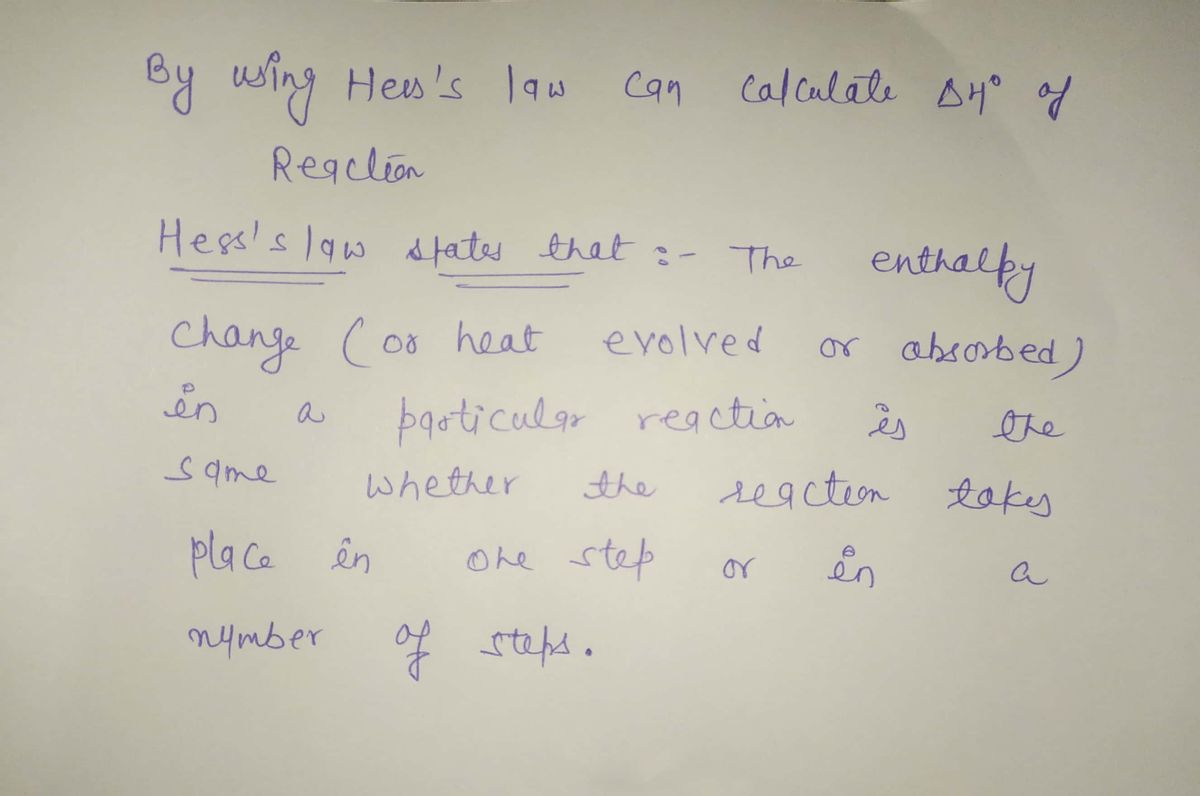 By using Hess's law can calculate ΔH° of
Reaction
Hess's law states that :- The enthalpy
change (or heat evolved or absorbed)
in a particular reaction is the
same whether the reaction takes
place in one step or in a
number of steps.